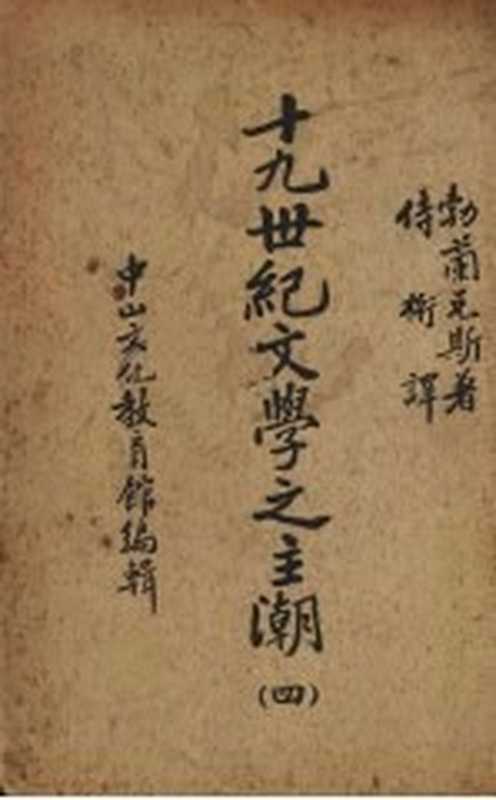 勃蘭兌斯著
侍桁譯
十九世紀文學之主潮
(四)
中山文化教育館編輯